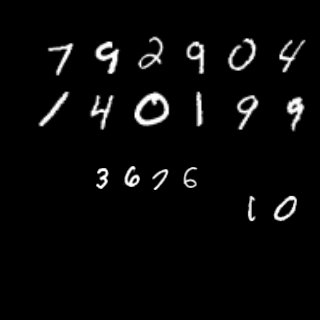 792904
140199
3676
10